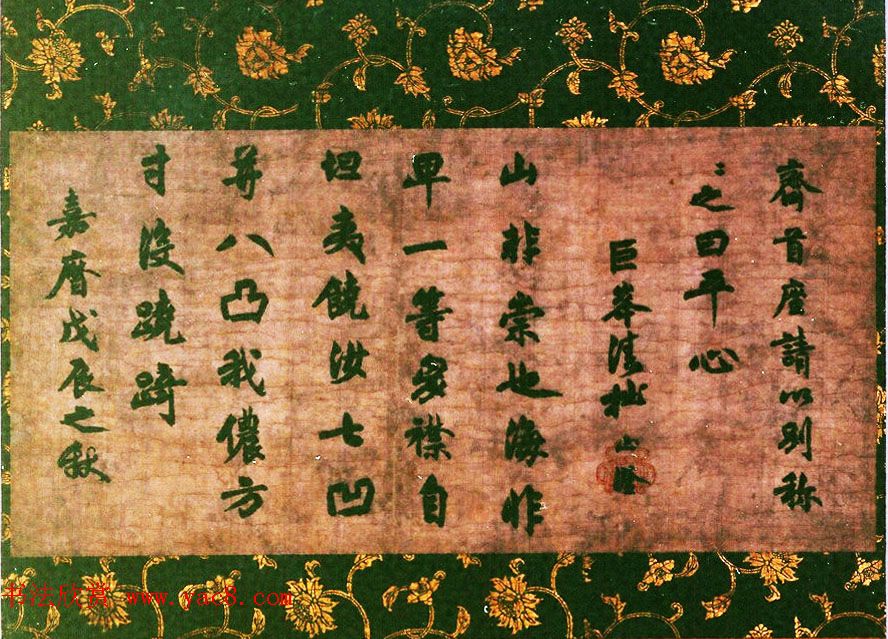 齋首座請以別称
〻之曰平心
巨峯清拙
山非崇也海非
卑一等胷襟自
坦夷饒汝七凹
并八凸我儂方
寸没蹺踦
嘉曆戊辰之秋
书法欣赏 www.yac8.com